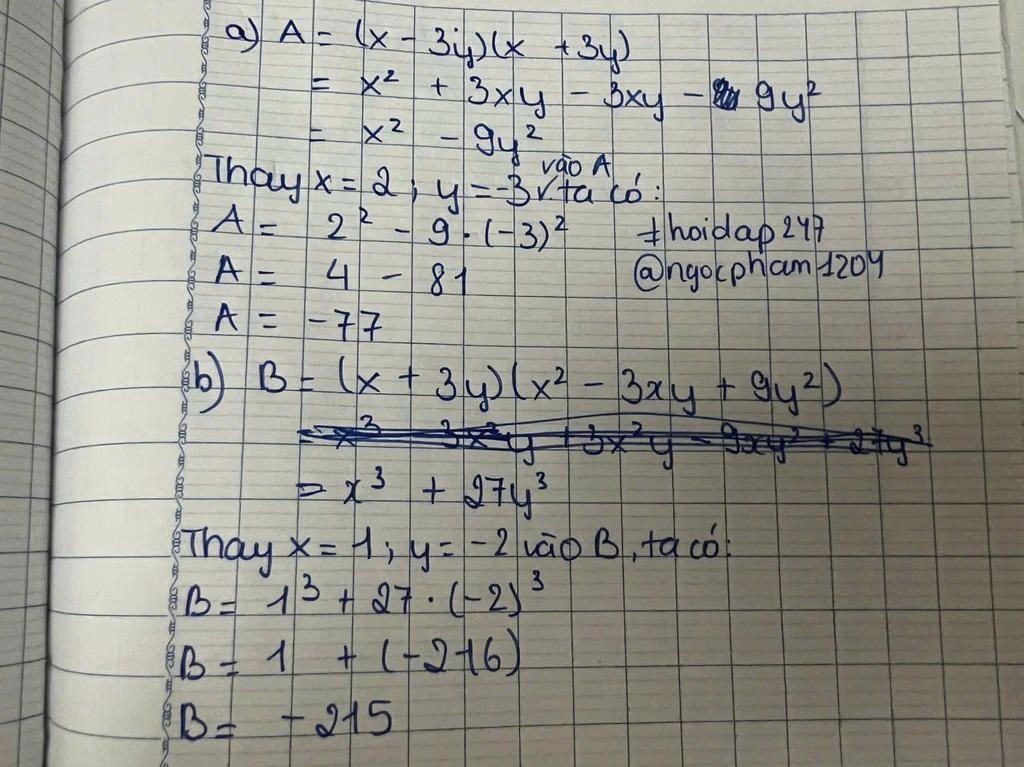 a) A = (x - 3y)(x + 3y)
= x² + 3xy - 3xy - 9y²
= x² - 9y²
Thay x = 2; y = -3 vào A ta có:
A = 2² - 9 · (-3)² #hoidap247
A = 4 - 81 @ngocpham1204
A = -77
b) B = (x + 3y)(x² - 3xy + 9y²)
= x³ - 3x²y + 3x²y - 9xy² + 27y³
= x³ + 27y³
Thay x = 1; y = -2 vào B, ta có:
B = 1³ + 27 · (-2)³
B = 1 + (-216)
B = -215